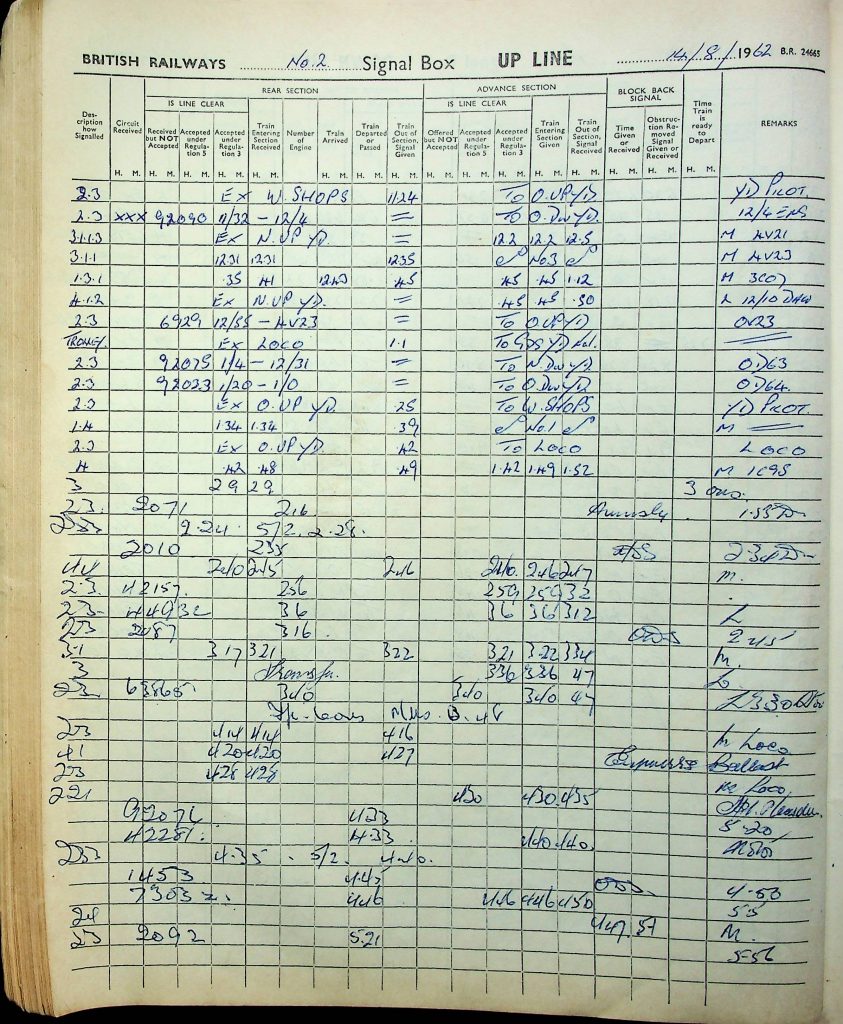 BRITISH RAILWAYS No.2 Signal Box UP LINE 14/8/1962 B.R. 24665
REAR SECTION ADVANCE SECTION BLOCK BACK SIGNAL
IS LINE CLEAR IS LINE CLEAR
Description how Signalled Circuit Received Received but NOT Accepted Accepted under Regulation 5 Accepted under Regulation 3 Train Entering Section Received Number of Engine Train Arrived Train Departed or Passed Train Out of Section, Signal Given Offered but NOT Accepted Accepted under Regulation 5 Accepted under Regulation 3 Train Entering Section Given Train Out of Section, Signal Received Time Given or Received Obstruction Removed Signal Given or Received Time Train is ready to Depart REMARKS
H. M. H. M. H. M. H. M. H. M. H. M. H. M. H. M. H. M. H. M. H. M. H. M. H. M. H. M. H. M. H. M.
2.3 Ex W. SHOPS 1/24 To O.UP YD. YD PILOT
2.3 XXX 92090 11/32 – 12/4 = To O.DW YD. 12/4 ENS
3.1.1.3 Ex N.UP YD. = 12.2 12.2 12.5 M 4V21
3.1.1 12.31 12.31 12.35 No3 M 4V23
1.3.1 .35 .41 12.43 .45 .45 .45 1.12 M 3C07
4.1.2 Ex N.UP YD. = .45 .45 .50 L 12/10
2.3 6929 12/55 – 4V23 = To O.UP YD 0V23
TROLLEY Ex LOCO 1.1 To GDS YD
2.3 92075 1/4 – 12/31 = To N.DW YD. OD63
2.3 92023 1/20 – 1/0 = To O.DW YD. OD64
2.3 Ex O.UP YD. .25 To W.SHOPS YD PILOT
1.4 1.34 1.34 .39 No1 M
2.3 Ex O.UP YD. .42 To LOCO LOCO
4 .42 .48 .49 1.42 1.49 1.52 M 1C95
3 29 29 3
23. 2071 216 Annesley
2.24. 5/2. 2.28.
2010 235
44 240 245 246 240 246 247 m.
2.3. 42157. 256 259 259 32
23 44932 36 36 36 312 L
23 2087 316 245
31 317 321 322 321 322 334 m.
3 336 336 47 L
23 63865 340 340 340 47
23 414 414 416 m Loco
41 420 420 427 Ballast
23 428 428 Loco
221 430 430 435
92074 433 5-20
42281. 433 440 440
233 4.35 . 5/2 440.
1453 445 4-50
73032. 446 446 446 450 55
24 447 57 M.
23 2092 521 5-56